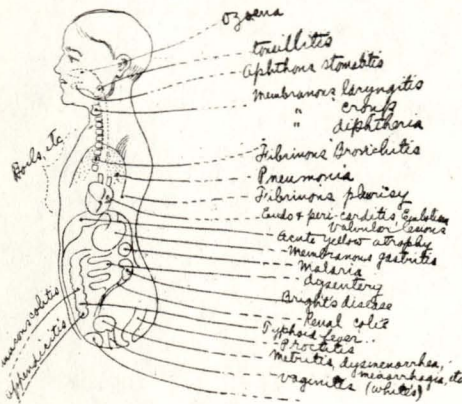 Ozaena
tonsillitis
Aphthous stomatitis
Membranous laryngitis
" croup
" diphtheria
Boils, etc.
Fibrinous Bronchitis
Pneumonia
Fibrinous pleurisy
Endo & peri-carditis Embolism
Valvular lesions
Acute yellow atrophy
Membranous gastritis
Malaria
dysentery
Bright's disease
Renal colic
Typhoid fever
Proctitis
Metritis, dysmenorrhea,
menorrhagia, etc
Vaginitis (whites)
mucous colitis
appendicitis